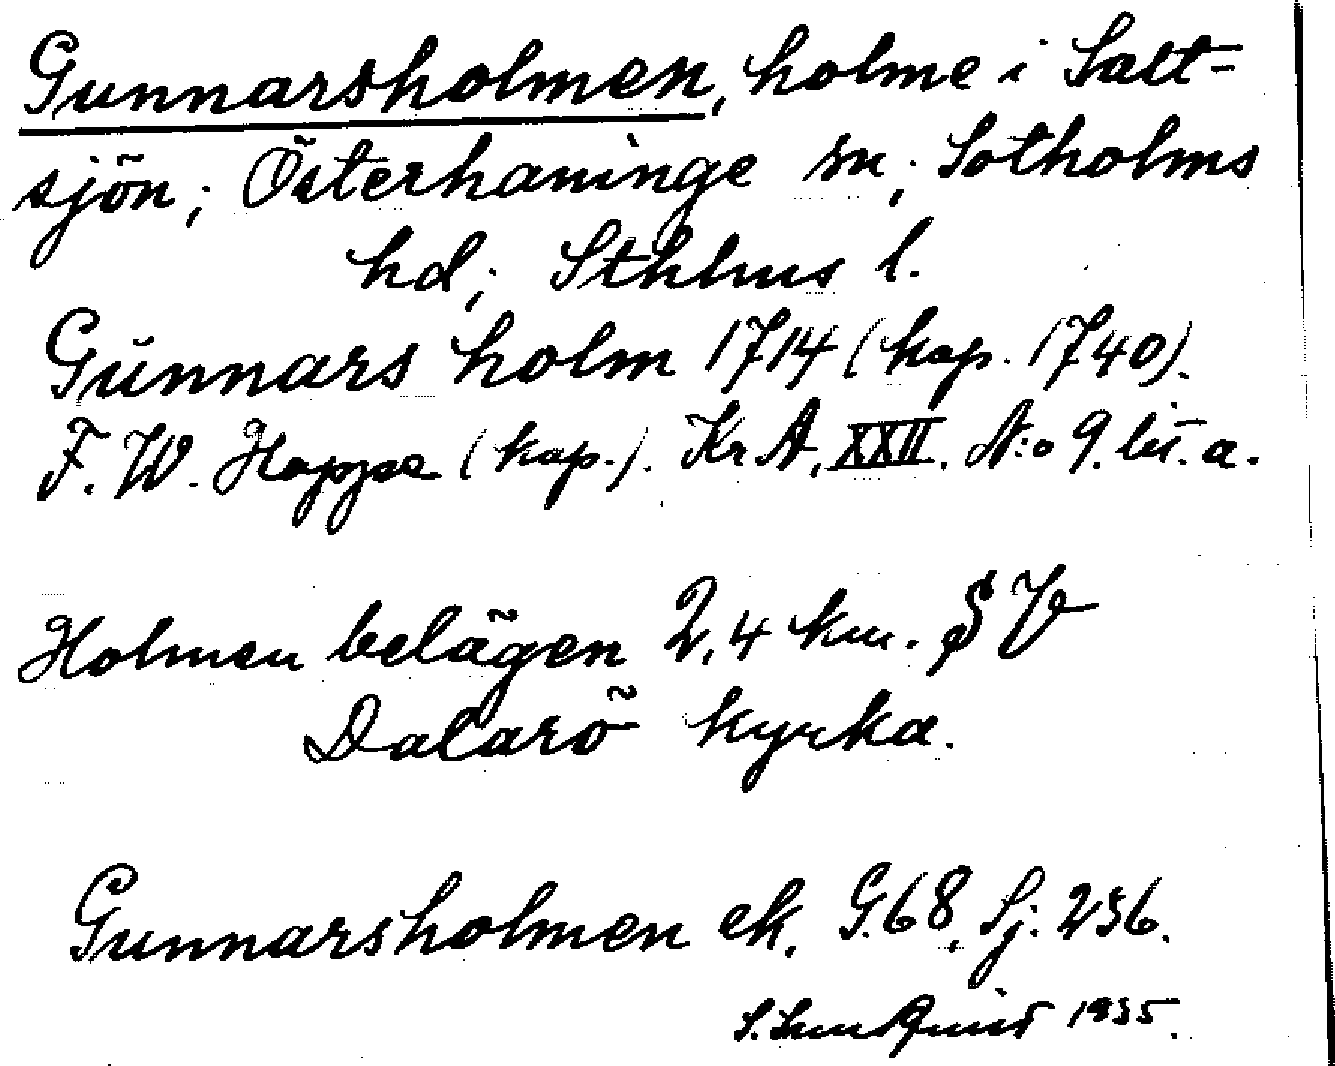 Gunnarsholmen, holme i Salt-
sjön; Österhaninge sn; Sotholms
hd; Sthlms l.
Gŭnnars holm 1714 (kop. 1740).
F. W. Hoppe (kop.). Kr A. XXII. N:o 9. lit. a.
Holmen belägen 2,4 km. SV
Dalarö kyrka.
Gunnarsholmen ek. G.68, Sj. 236.
1935.